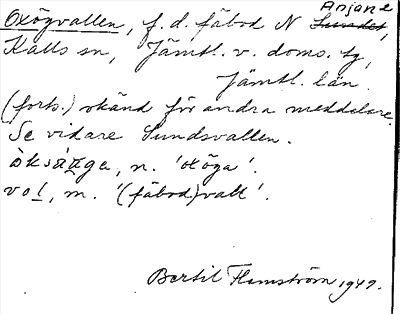 Oxögvallen, f. d. fäbod N Sundet, Anjan 2
Kalls sn, Jämtl. v. doms. tg,
Jämtl. län.
(forts.) okänd för andra meddelare.
Se vidare Sundsvallen.
n. 'oxöga'.
vol, m. '(fäbod)vall'.
Bertil Flemström 1949.